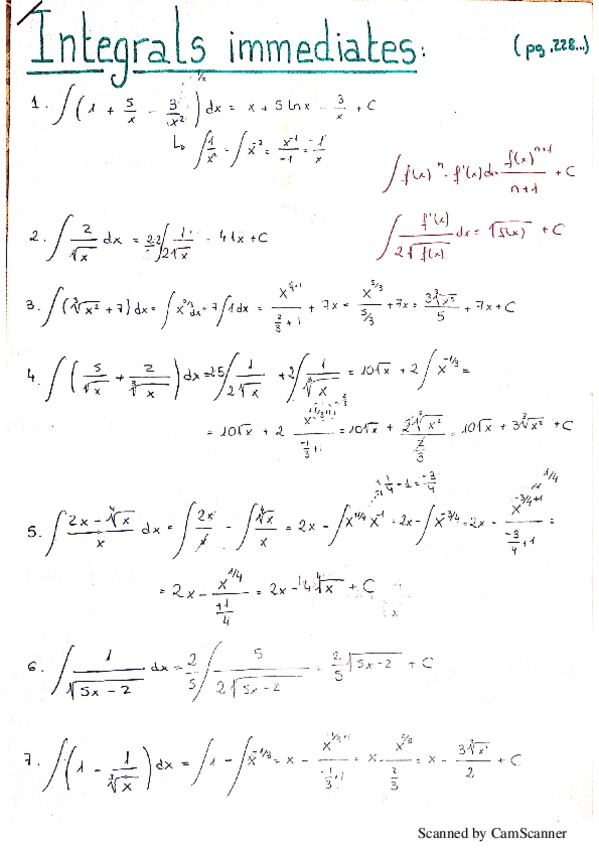 Integrals immediates: (pg.228...)
1. ∫(1 + 5/x - 3/x²) dx = x + 5 ln x - 3/x + C
↳ ∫1/x² = ∫x⁻² = x⁻¹/-1 = -1/x
∫f(x)ⁿ · f'(x)dx = f(x)ⁿ⁺¹/n+1 + C
2. ∫2/√x dx = 2·2∫1/2√x = 4√x + C
∫f'(x)/2√f(x) dx = √f(x) + C
3. ∫(∛x² + 7) dx = ∫x^2/3 dx + 7∫1dx = x^2/3+1/(2/3+1) + 7x = x^5/3/(5/3) + 7x = 3∛x⁵/5 + 7x + C
4. ∫(5/√x + 2/∛x) dx = 2·5∫1/2√x + 2∫1/∛x = 10√x + 2∫x^-1/3 =
= 10√x + 2 x^-1/3+1/(-1/3+1) = 10√x + 2∛x²/(2/3) = 10√x + 3∛x² + C
1/4 - 1 = -3/4
5. ∫(2x - ∜x)/x dx = ∫2x/x - ∫∜x/x = 2x - ∫x^1/4 x⁻¹ = 2x - ∫x^-3/4 = 2x - x^-3/4+1/(-3/4+1) =
= 2x - x^1/4/(+1/4) = 2x - 4∜x + C
6. ∫1/√5x-2 dx = 2/5 ∫5/2√5x-2 = 2/5 √5x-2 + C
7. ∫(1 - 1/∛x) dx = ∫1 - ∫x^-1/3 = x - x^-1/3+1/(-1/3+1) = x - x^2/3/(2/3) = x - 3∛x²/2 + C
Scanned by CamScanner